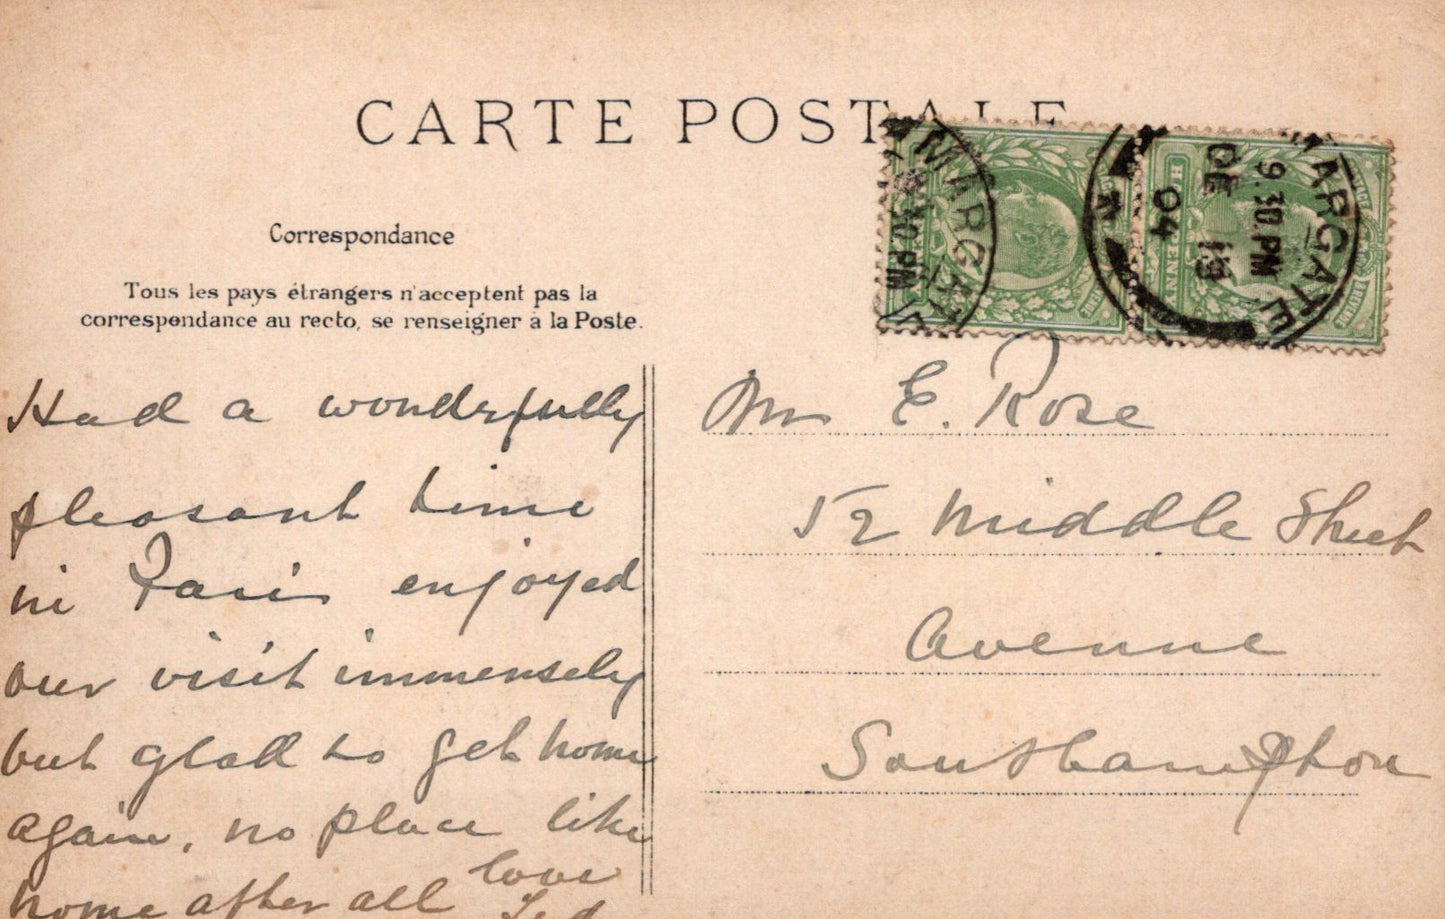 CARTE POSTALE
Correspondance
Tous les pays étrangers n'acceptent pas la
correspondance au recto, se renseigner à la Poste.
MARGATE
30 PM
MARGATE
9.30 PM
DE 19
04
Had a wonderfully
pleasant time
in Paris enjoyed
our visit immensely
but glad to get home
again, no place like
home after all love
Ted
E. Rose
52 Middle Street
Avenue
Southampton